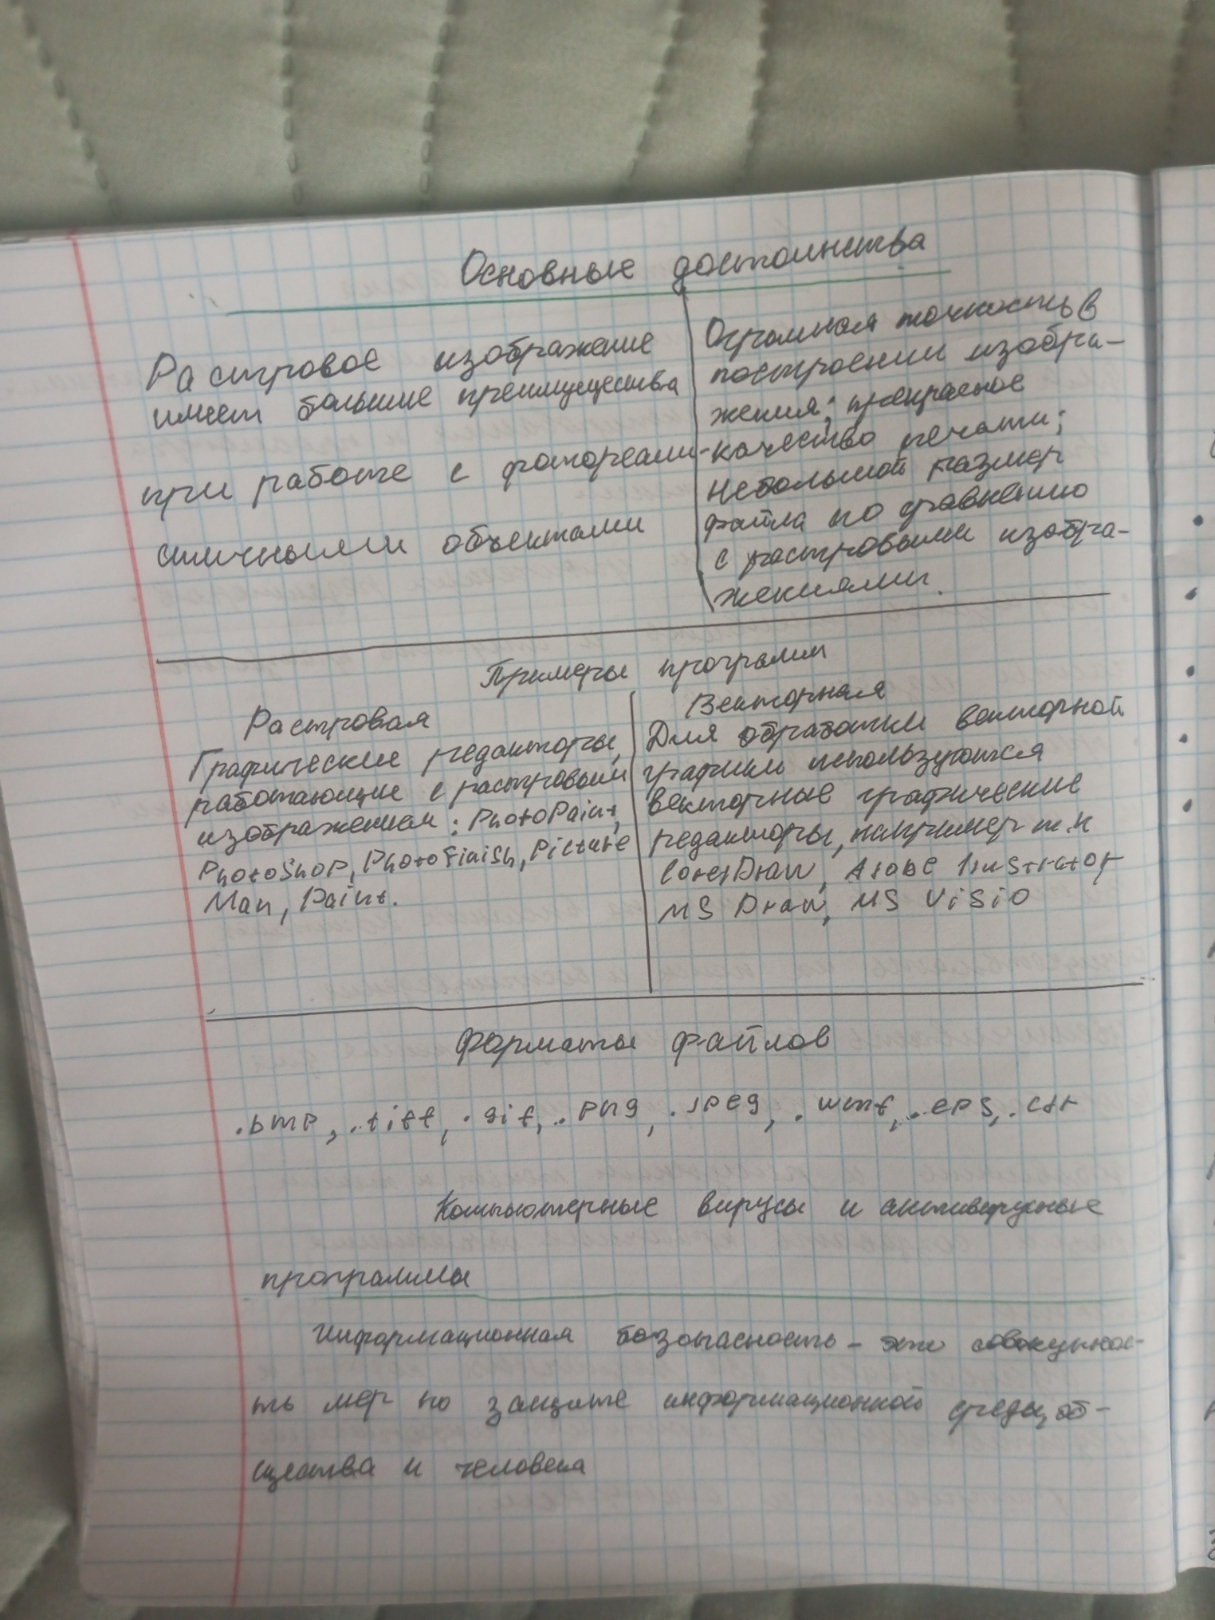 Основные достоинства
Растровое изображение
имеет большие преимущества
при работе с фотореали-
стичными объектами
Огромная точность в
построении изобра-
жения; прекрасное
качество печати;
Небольшой размер
файла по сравнению
с растровыми изобра-
жениями.
Примеры программ
Растровая
Графические редакторы,
работающие с растровыми
изображением: PhotoPaint,
PhotoShop, PhotoFinish, Picture
Man, Paint.
Векторная
Для обработки векторной
графики используются
векторные графические
редакторы, например т.к
CorelDraw, Adobe Illustrator
MS Draw, MS Visio
Форматы файлов
.bmp, .tiff, .gif, .png, .jpeg, .wmf, .eps, .cdr
Компьютерные вирусы и антивирусные
программы
Информационная безопасность - это совокупнос-
ть мер по защите информационной среды об-
щества и человека